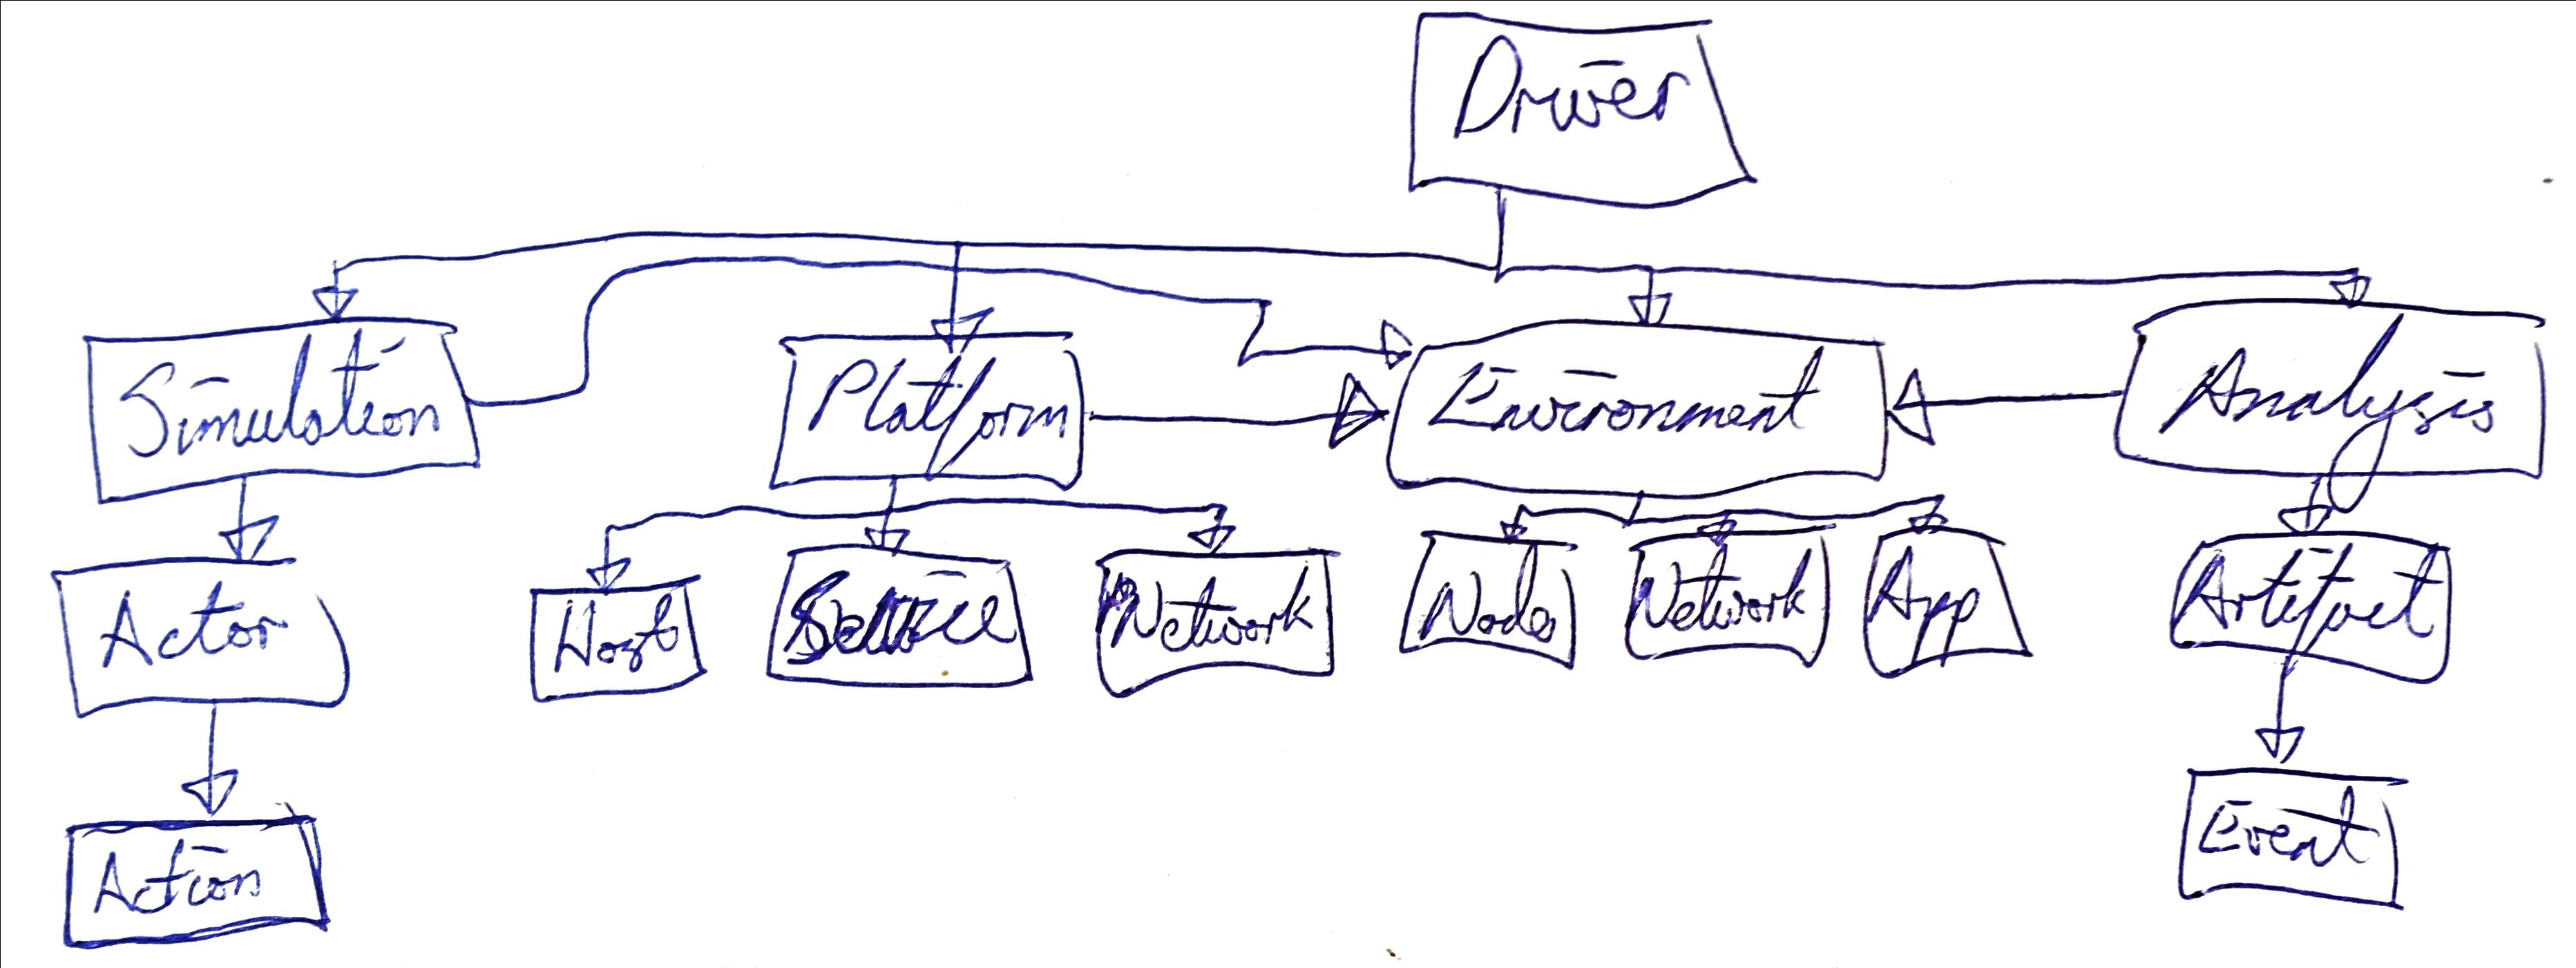 Driver
Simulation
Platform
Environment
Analysis
Actor
Host
Service
Network
Node
Network
App
Artifact
Action
Event